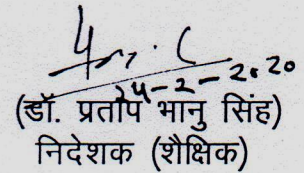 24-2-2020
(डॉ. प्रताप भानु सिंह)
निदेशक (शैक्षिक)